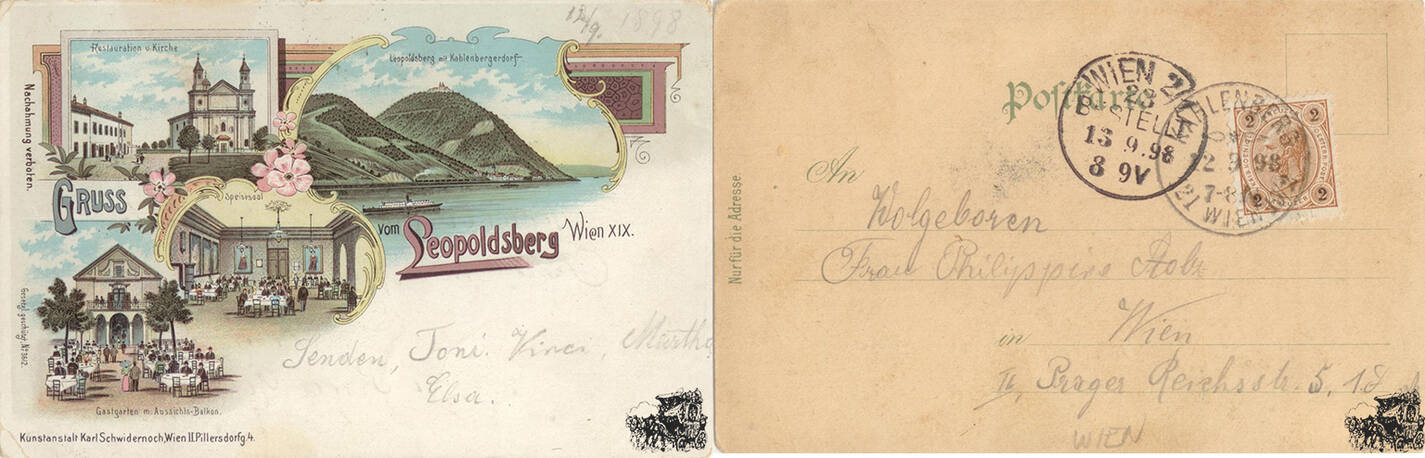 12/9. 1898
Restauration u. Kirche
Leopoldsberg mit Kahlenbergerdorf
Nachahmung verboten.
GRUSS
Speisesaal
vom Leopoldsberg Wien XIX.
Gesetzl. geschützt, No 3612.
Senden, Toni. Martha
Elsa.
Gastgarten m. Aussichts-Balkon.
Kunstanstalt Karl Schwidernoch, Wien II. Pillersdorfg. 4.
Postkarte
WIEN 2/1
BESTELLT
13 9.98
8 9V
KAHLENBERG
12 9 98
7-8
WIEN
2 2
2 2
An
Wolgeboren
Frau Philippine
in Wien
II, Prager Reichsstr. 5.
WIEN
Nur für die Adresse.